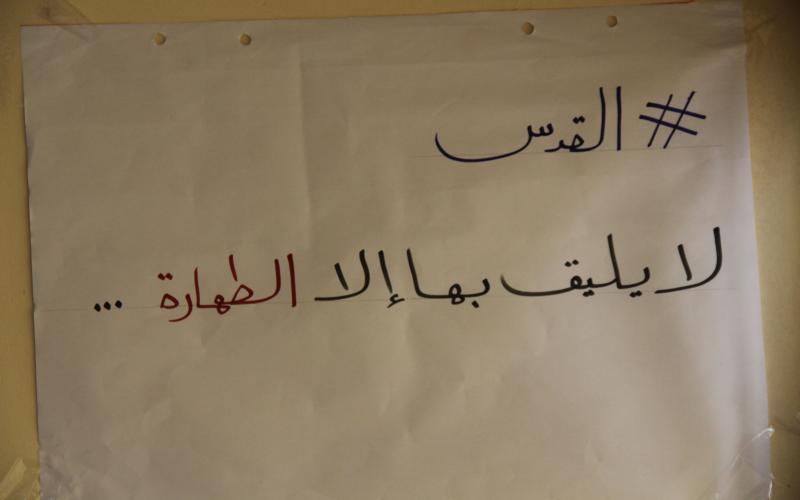 #القدس
لا يليق بها إلا الطهارة ...